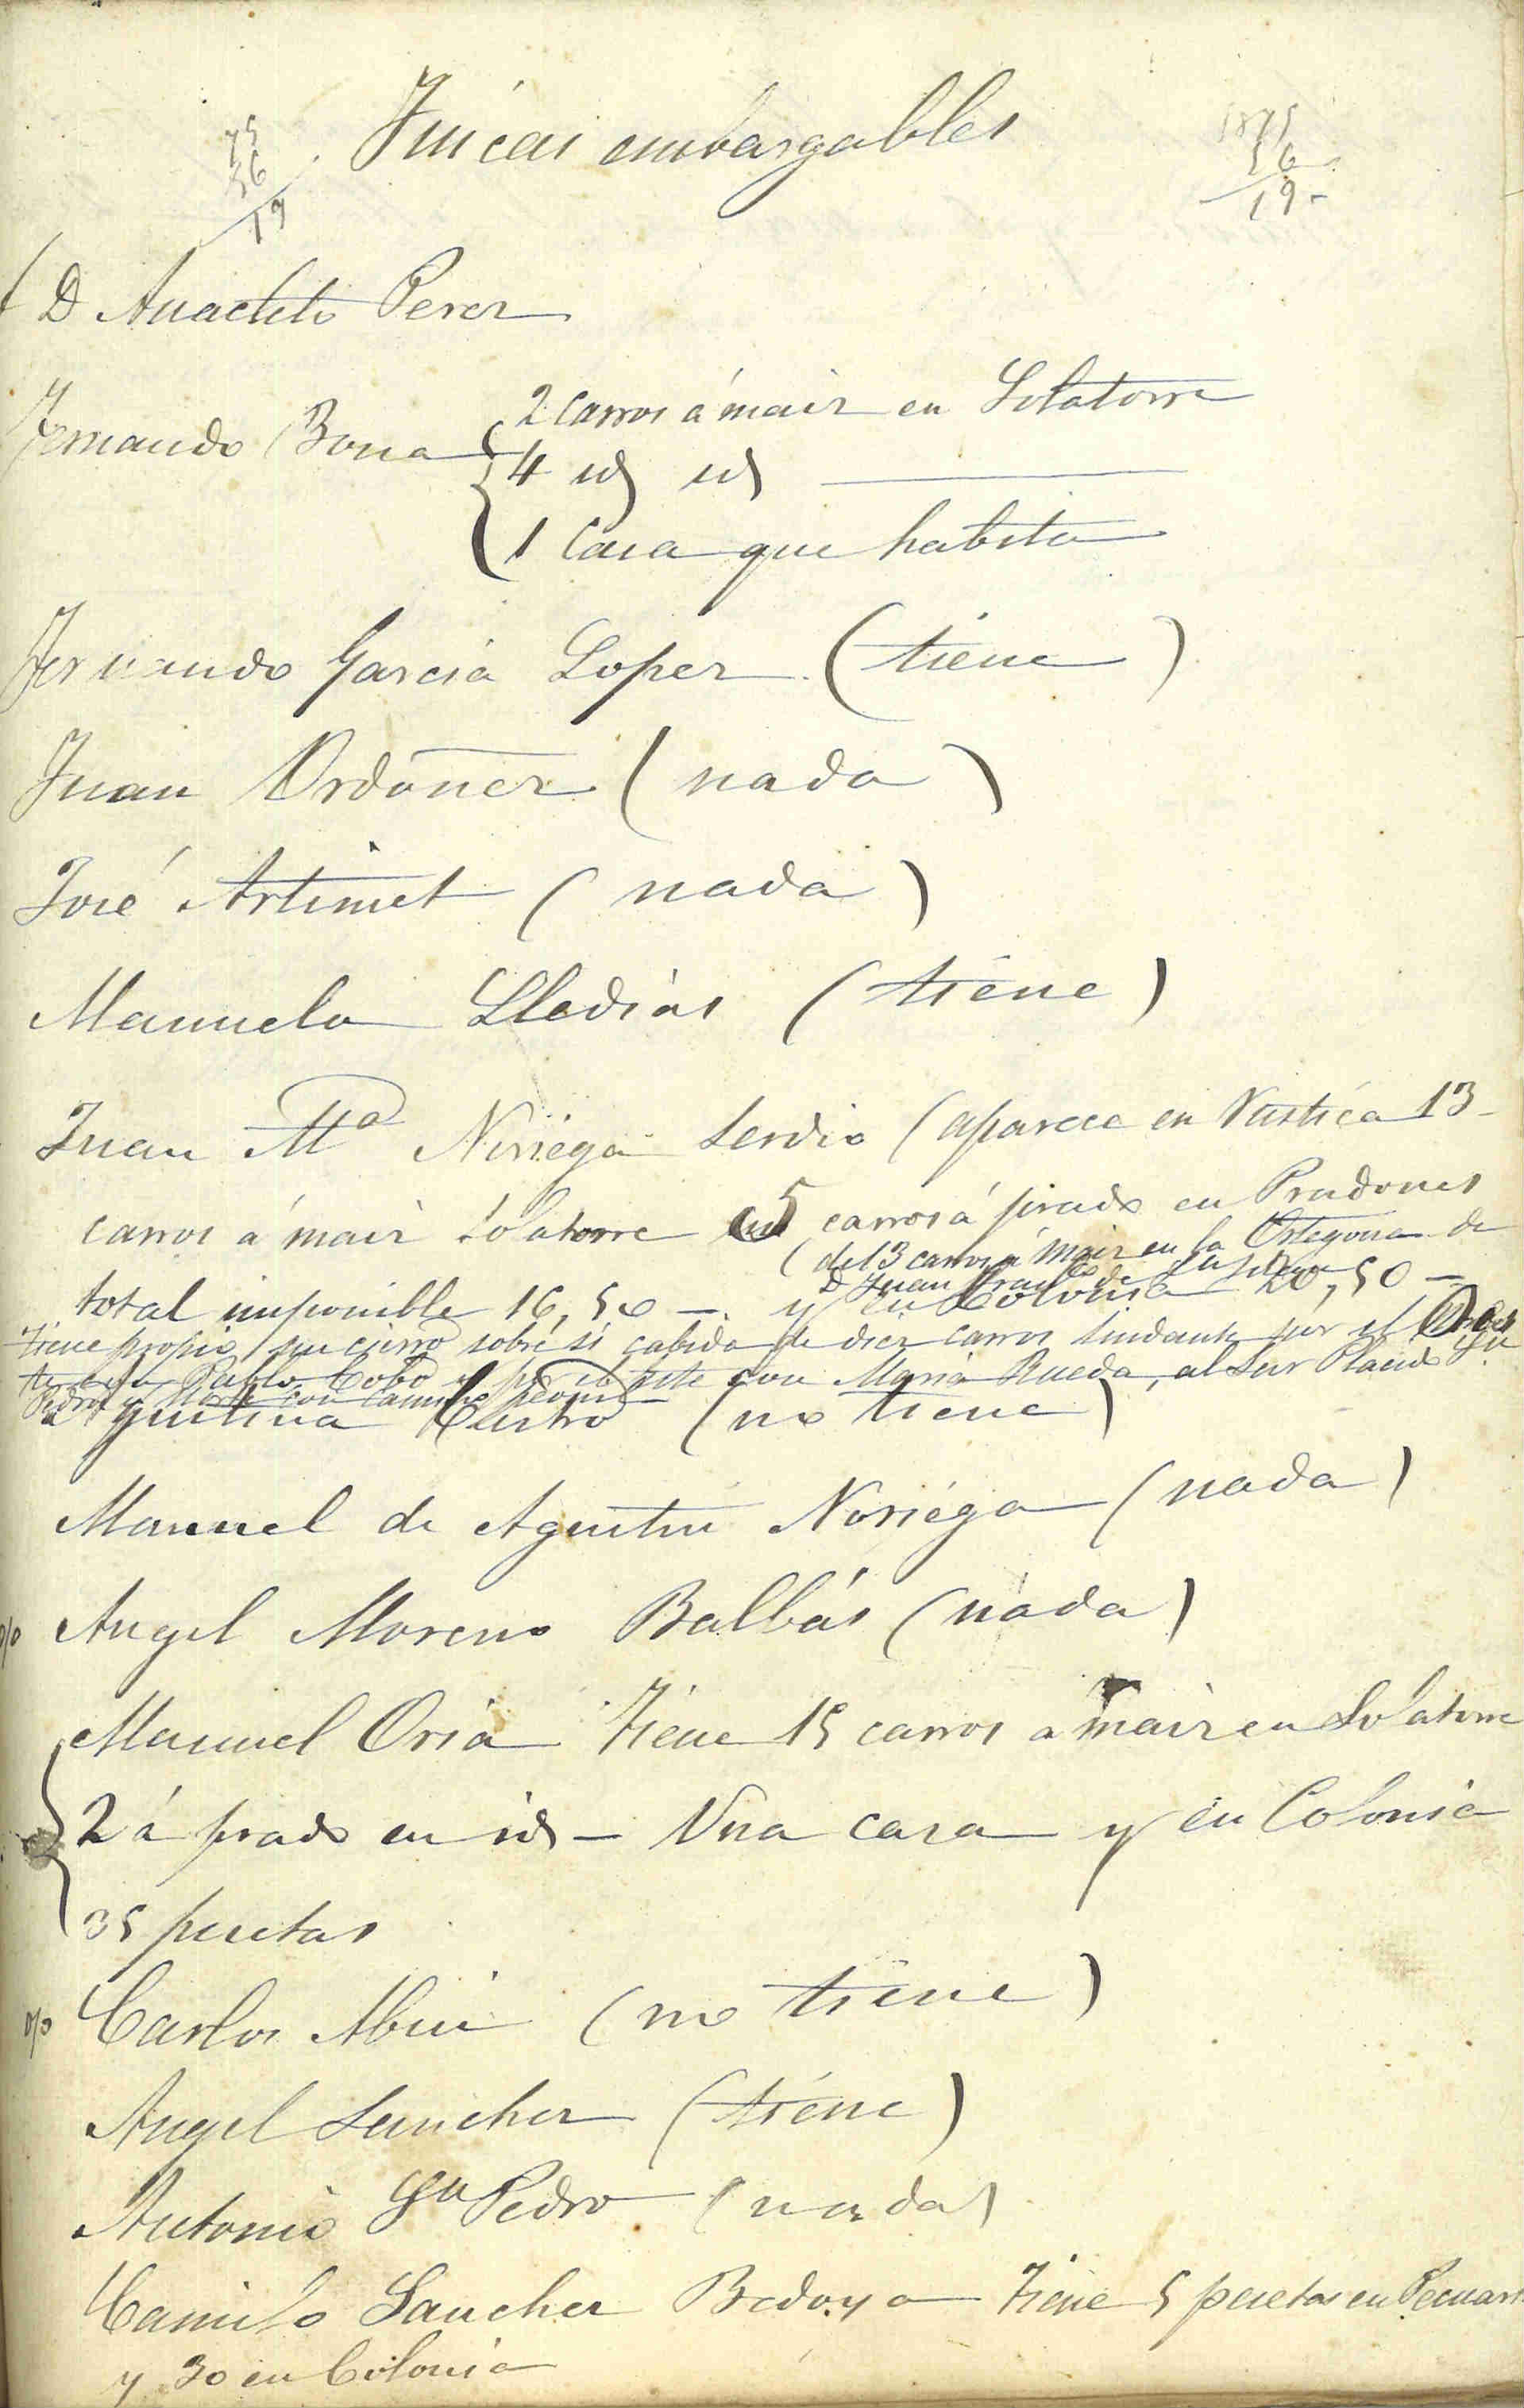 Fincas embargables
75
56
19
1875
56
19-
D Anacleto Perez
Fernando Bona
2 carros á maiz en Solatorre
4 id id ————
1 Casa que habita
Fernando Garcia Lopez (tiene)
Juan Ordoñez (nada)
José Artimet (nada)
Manuela Lledias (tiene)
Juan Mª Noriega Serdio (aparece en Rustica 13
carros á maiz Solatorre 5 carros á prado en Pradones
(del 3 carros á maiz en la Ortegona de
D Juan Fran^co de la
total imponible 16,50 —. y en Colonia 20,50 —
Tiene propio un cierro sobre sí cabida de diez carros lindante por el
Pablo Cobo y por el este con Maria Rueda, al Sur Placido Sn
Pedro y Norte con camino peonil
Agustina Castro (no tiene)
Manuel de Agustin Noriega (nada)
Angel Moreno Balbás (nada)
Manuel Oria Tiene 15 carros a maiz en Solatorre
2 á prado en id — Una casa y en Colonia
35 pesetas
Carlos Abin (no tiene)
Angel Sanchez (tiene)
Antonio Sn Pedro (nada)
Camilo Sanchez Bedoya Tiene 5 pesetas en Pecuari
y 30 en Colonia